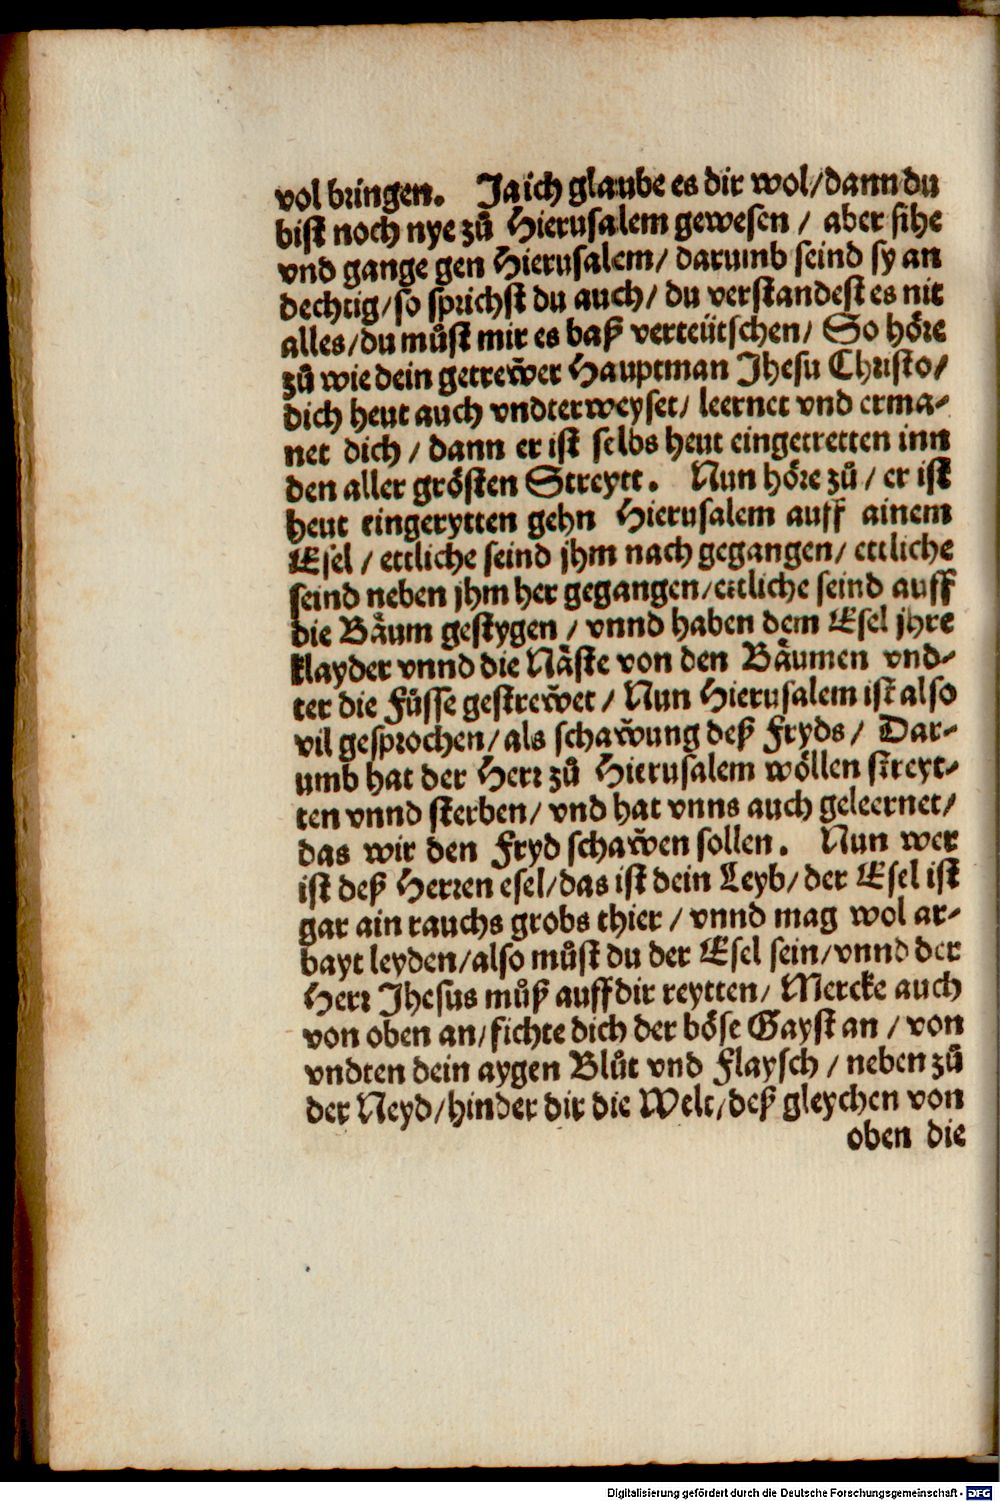 vol bringen. Ja ich glaube es dir wol/dann du
bist noch nye zů Hierusalem gewesen / aber sihe
vnd gange gen Hierusalem/ darumb seind sy an
dechtig/so sprichst du auch/ du verstandest es nit
alles/du můst mir es baß verteütschen/ So höre
zů wie dein getrew̆er Hauptman Jhesu Christo/
dich heut auch vndterweyset/ leernet vnd erma-
net dich / dann er ist selbs heut eingetretten inn
den aller grösten Streytt. Nun höre zů / er ist
heut eingerytten gehn Hierusalem auff ainem
Esel / ettliche seind jhm nach gegangen/ ettliche
seind neben jhm her gegangen/ettliche seind auff
die Bäum gestygen / vnnd haben dem Esel jhre
klayder vnnd die Näste von den Bäumen vnd-
ter die Füsse gestrew̆et / Nun Hierusalem ist also
vil gesprochen/ als schaw̆ung deß Fryds / Dar-
umb hat der Herr zů Hierusalem wöllen streyt-
ten vnnd sterben/ vnd hat vnns auch geleernet/
das wir den Fryd schaw̆en sollen. Nun wer
ist deß Herren esel/das ist dein Leyb/ der Esel ist
gar ain rauchs grobs thier / vnnd mag wol ar-
bayt leyden/also můst du der Esel sein/vnnd der
Herr Jhesus můß auff dir reytten/ Mercke auch
von oben an/fichte dich der böse Gayst an / von
vndten dein aygen Blůt vnd Flaysch / neben zů
der Neyd/hinder dir die Welt/deß gleychen von
oben die
Digitalisierung gefördert durch die Deutsche Forschungsgemeinschaft - DFG